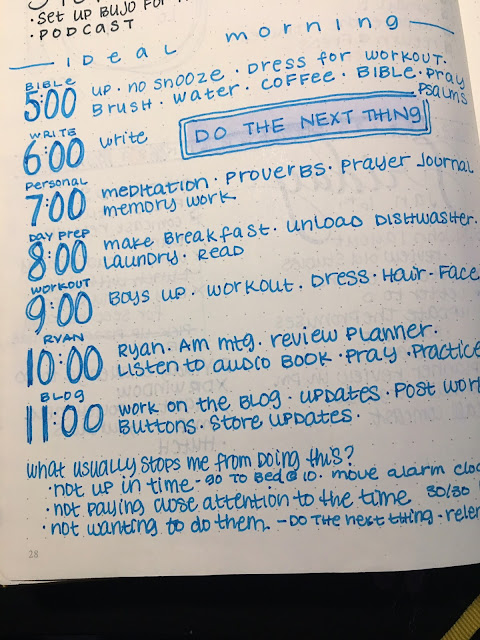 · Set up BUJO FOR
· PODCAST
Ideal morning
BIBLE
5:00 up · no snooze · Dress for workout.
Brush · water · coffee · BIBLE · pray
Psalms
WRITE
6:00 write
DO THE NEXT THING
Personal
7:00 meditation · Proverbs · Prayer Journal
memory work
DAY Prep
8:00 make Breakfast · unload Dishwasher.
Laundry · Read
WORKOUT
9:00 Boys up · workout · Dress · Hair · Face
RYAN
10:00 Ryan · Am mtg. review planner.
Listen to audio Book · Pray · Practice
BLOG
11:00 work on the Blog · updates · Post
Buttons · Store updates ·
what usually stops me from Doing this?
· not up in time - go to Bed @ 10 · move alarm
· not paying close attention to the time 30/30
· not wanting to do them. - DO The next thing -
28